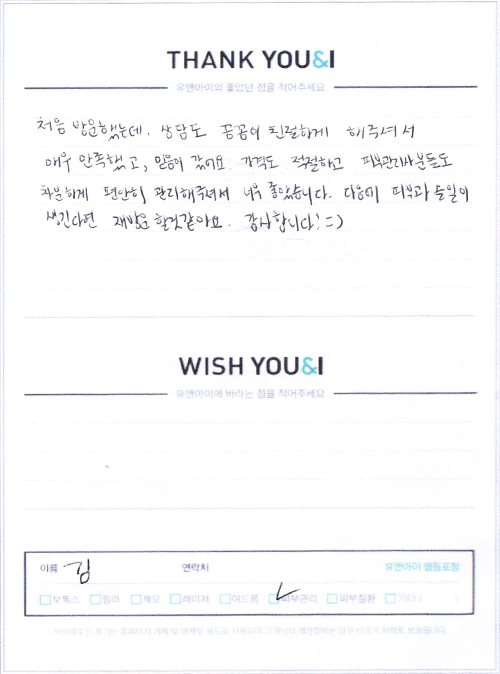 THANK YOU&I
유앤아이의 좋았던 점을 적어주세요
처음 방문했는데, 상담도 꼼꼼이 친절하게 해주셔서
매우 만족했고, 믿음이 갔어요. 가격도 적절하고 피부관리사분들도
차분하게 편안히 관리해주셔서 너무 좋았습니다. 다음에 피부과 들일이
생긴다면 재방문 할것같아요. 감사합니다! =)
WISH YOU&I
유앤아이에 바라는 점을 적어주세요
이름 김 연락처 유앤아이 영등포점
보톡스 필러 제모 레이저 여드름 피부관리 피부질환 기타 ( )
작성해주신 후기는 홈페이지 게재 및 마케팅 용도로 사용되며 고객님의 개인정보는